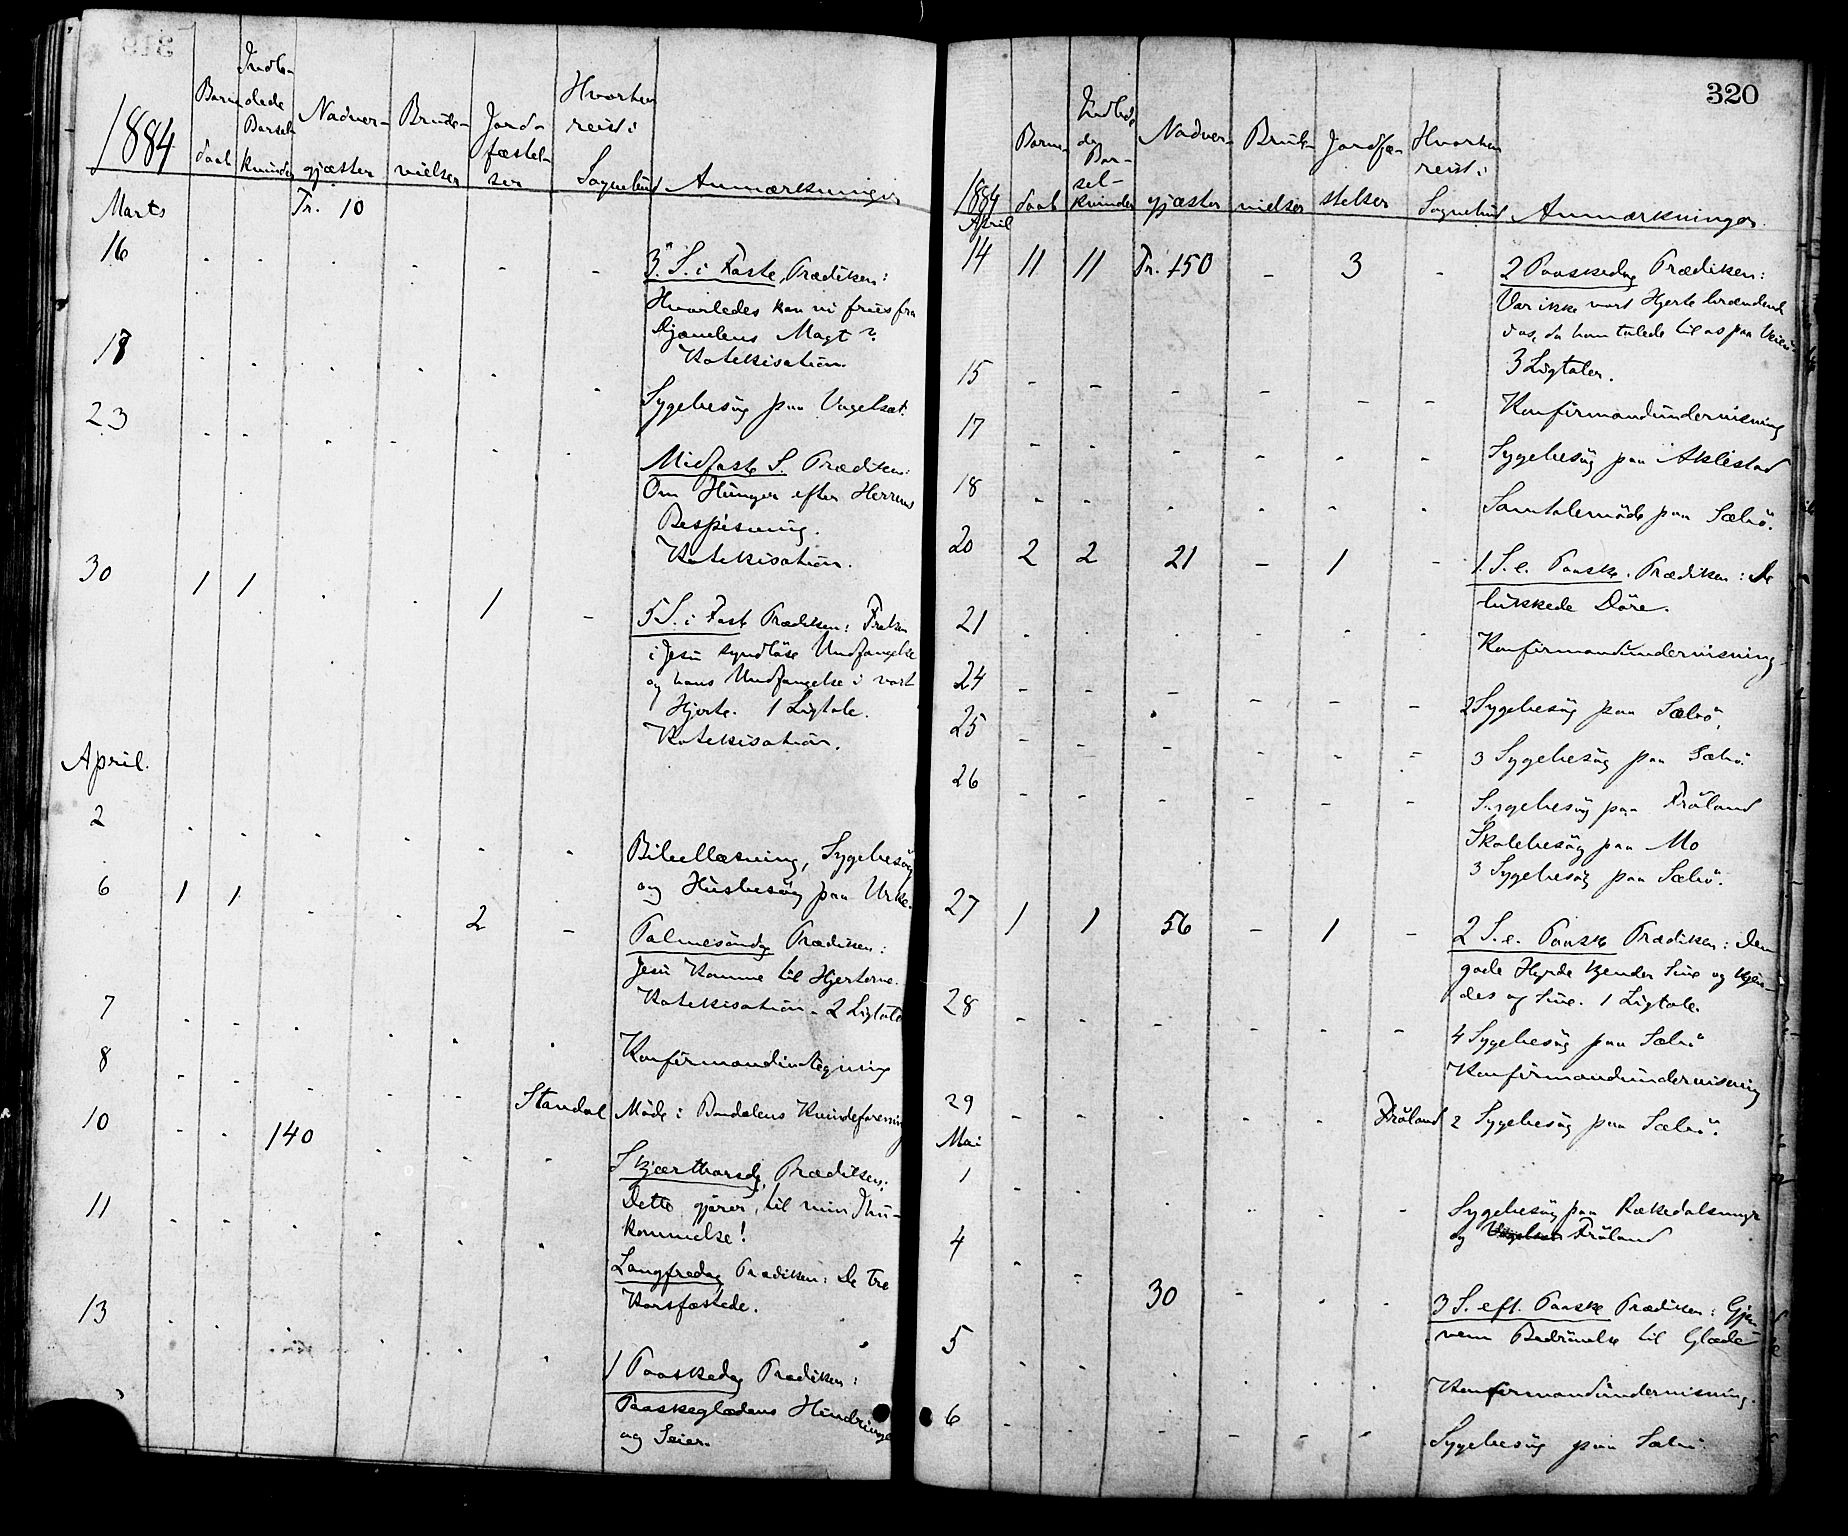 1884
Barne
daab
Indle-
dede
Barsel
kvinder
Nadver-
gjæster
Brude-
vielser
Jord-
fæstel-
ser
Hvorhen
reist i
Sognebud
Anmærkninger
Marts
Tr. 10
16 - - - - - - 3" S. i Faste, Prædiken:
Hvorledes kan vi fries fra
Djævelens Magt?
Katekisation.
18 - - - - - - Sygebesøg paa
23 - - - - - - Midfaste S. Prædiken:
Om Hunger efter Herrens
Bespisning.
Katekisation.
30 1 1 - - 1 - 5 S. i Fast Prædiken:
i Jesu syndløse Undfangelse
og hans Undfangelse i vort
Hjerte. 1 Ligtale.
Katekisation.
April.
2 - - - - - - Bibellæsning, Sygebesøg
og Husbesøg paa Urke.
6 1 1 - - 2 - Palmesöndag Prædiken:
Jesu Komme til Hjerterne.
Katekisation - 2 Ligtaler
7 - - - - - - Konfirmandindtegning
8 - - - - - Standal Möde i Bondalens Kvindeforening
10 - - 140 - - - Skjærthorsdg, Prædiken:
Dette gjører til min Ihu-
kommelse!
11 - - - - - - Langfredag Prædiken: De tre
Korsfæstede.
13 - - - - - - 1 Paaskedag Prædiken:
Paaskeglædens Hindringer
og Seier.
320
1884
Barne-
daab
Barsel-
kvinder
Nadver-
gjæster
Brude-
vielser
Jordfæ-
stelser
Hvorhen
reist i
Sognebud
Anmærkninger
April
14 11 11 Tr. 150 - 3 - 2 Paaskedag Prædiken:
Var ikke vort Hjerte brændende
i os, da han talede til os paa Veien
3 Ligtaler.
15 - - - - - - Konfirmandundervisning
17 - - - - - - Sygebesøg paa Aklestad
18 - - - - - - Samtalemöde paa Sæbö.
20 2 2 21 - 1 - 1. S. e. Paaske. Prædiken: De
lukkede Döre.
21 - - - - - - Konfirmandundervisning
24 - - - - - - 2 Sygebesøg paa Sæbö.
25 - - - - - - 3 Sygebesøg paa Sæbö.
26 - - - - - - Sygebesøg paa Fröland
Skolebesøg paa Mo
3 Sygebesøg paa Sæbö.
27 1 1 56 - 1 - 2 S. e. Paaske Prædiken: Den
gode Hyrde kjender Sine og kjen-
des af Sine. 1 Ligtale.
28 - - - - - - 4 Sygebesøg paa Sæbö
Konfirmandundervisning
29 - - - - - Fröland 2 Sygebesøg paa Sæbö.
Mai
1 - - - - - - Sygebesøg paa
og Fröland
4 - - 30 - - - 3 S. eft. Paaske Prædiken: Gjen
nem Bedrövelse til Glæde
5 - - - - - - Konfirmandundervisning.
6 - - - - - - Sygebesøg paa Sæbö